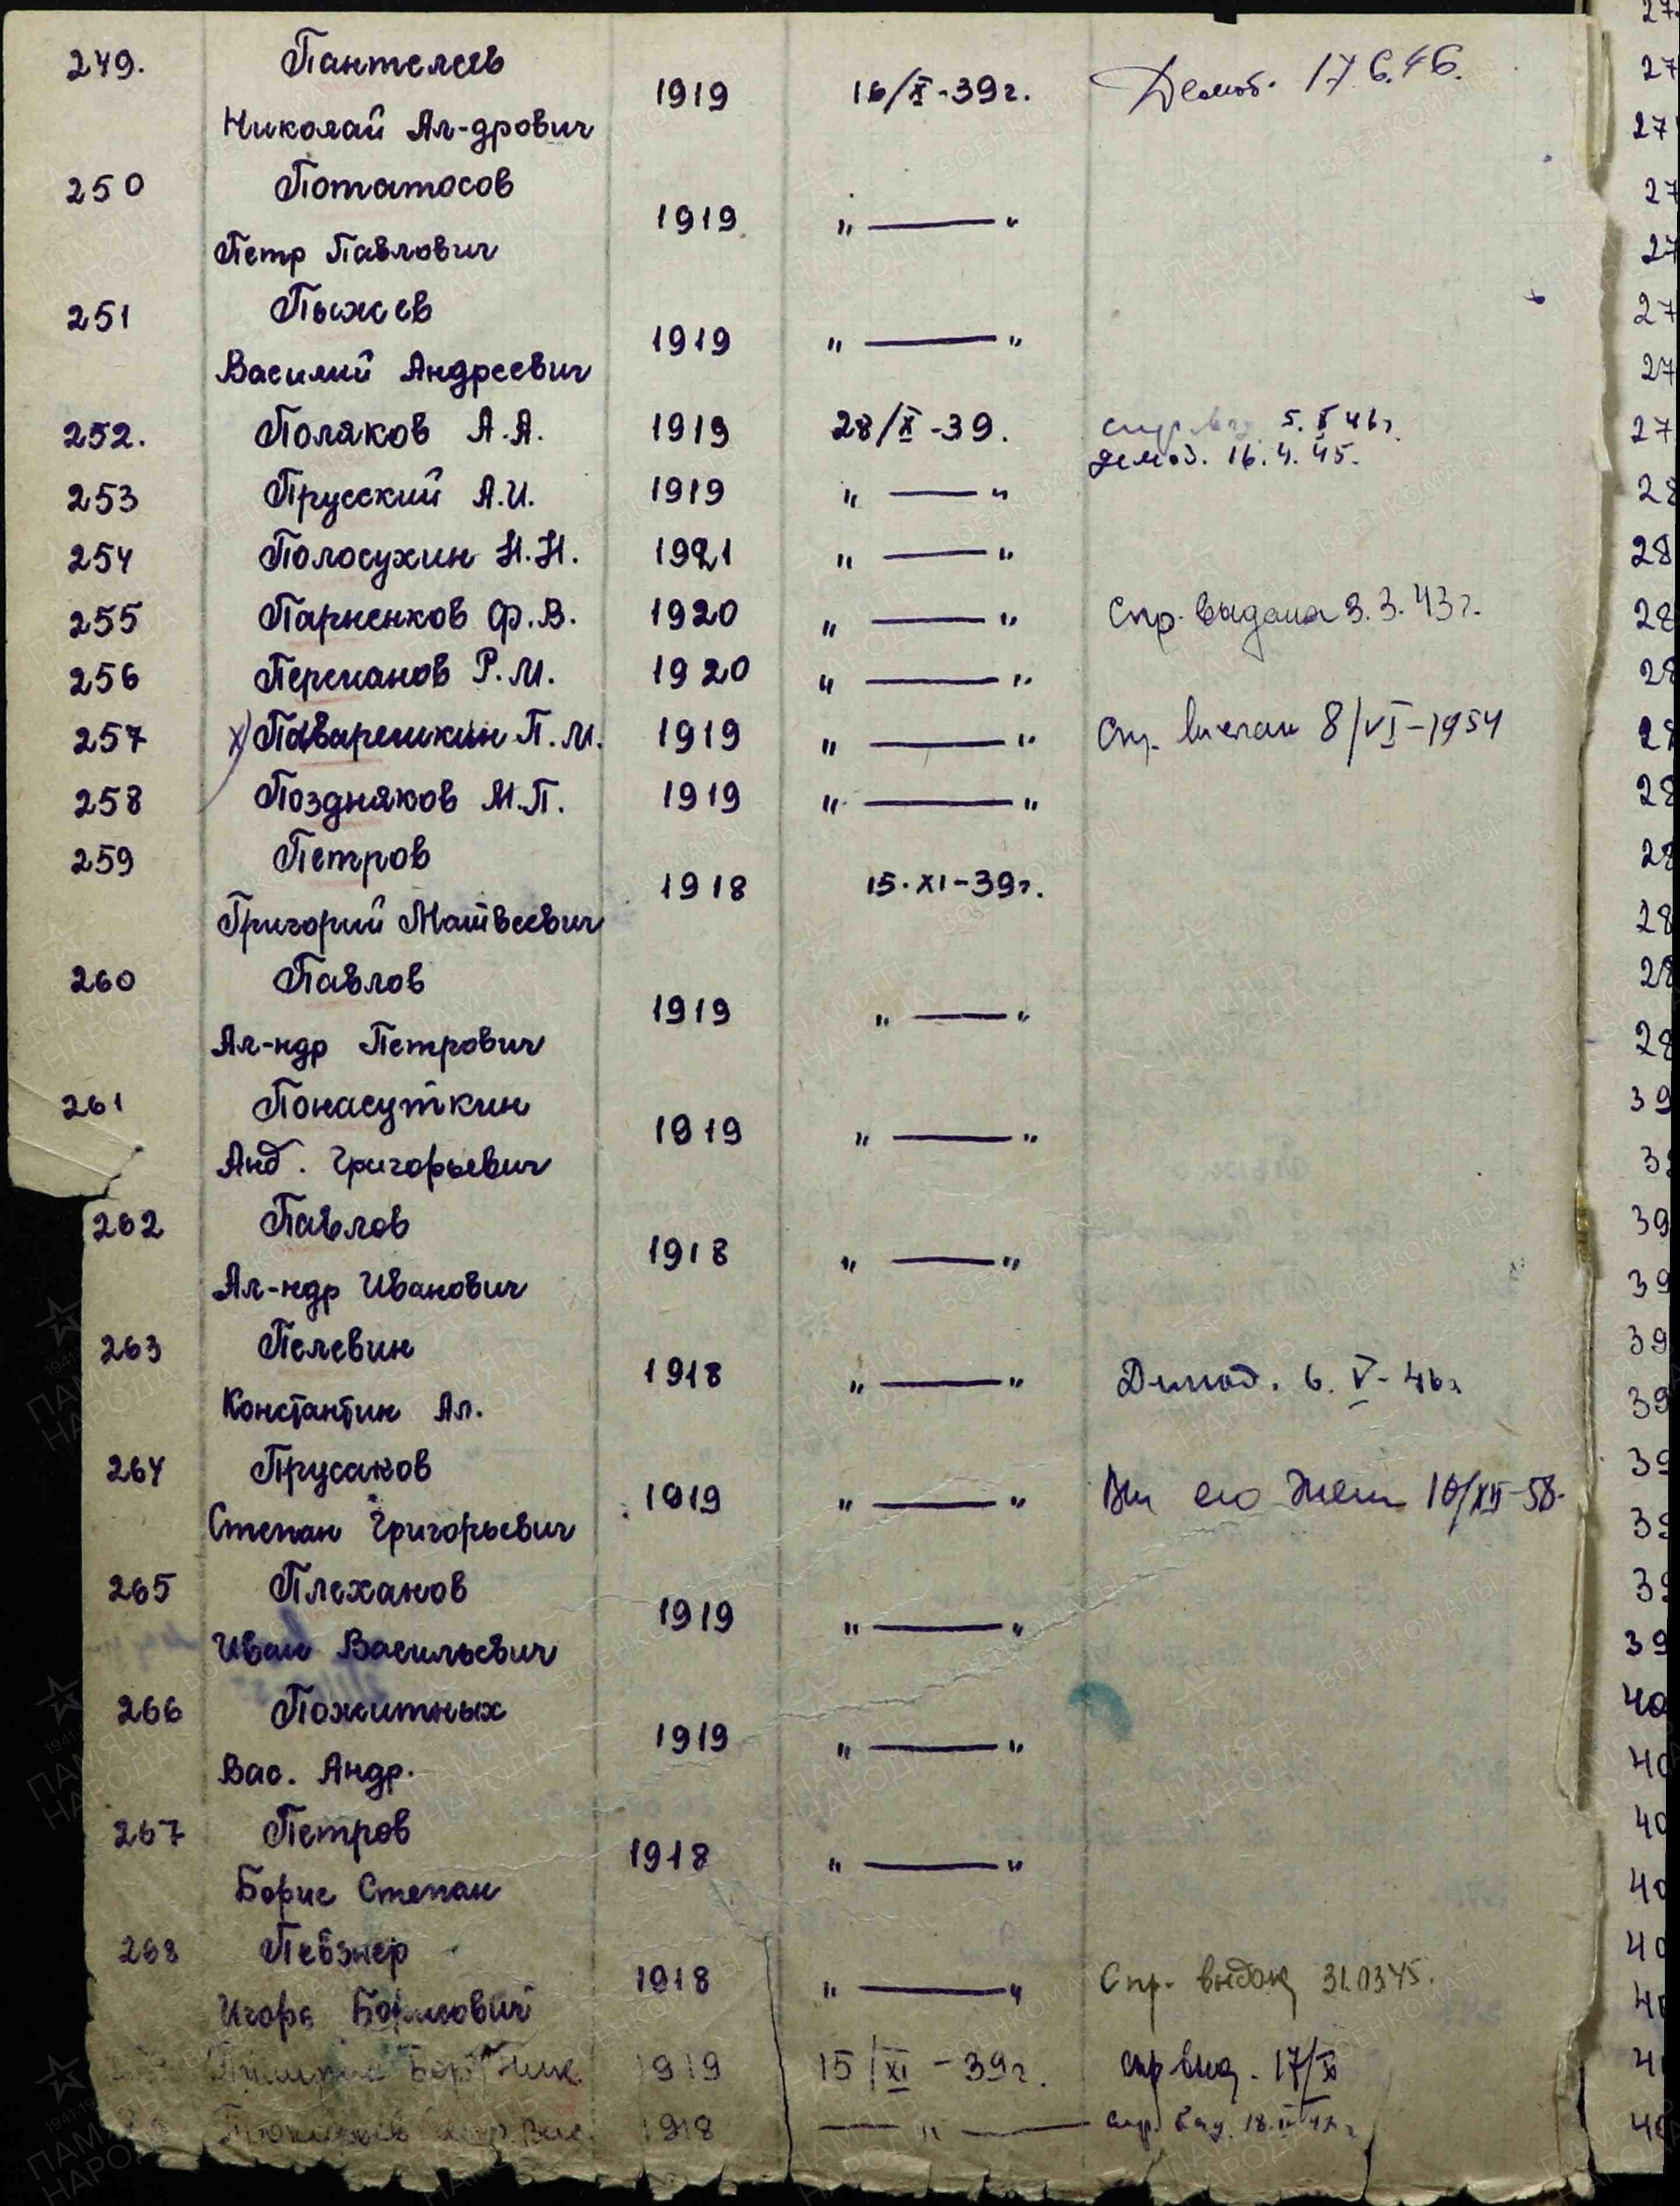 249. Пантелеев 1919 16/X-39г. Демоб. 17.6.46.
Николай Ал-дрович
250 Потатосов 1919 " — "
Петр Павлович
251 Пыжев 1919 " — "
Василий Андреевич
252. Поляков А.А. 1919 28/X-39. 5.X 46г.
демоб. 16.4.45.
253 Прусский А.И. 1919 " — "
254 Полосухин Н.Н. 1921 " — "
255 Парненков Ф.В. 1920 " — " Спр. выдана 3.3.43г.
256 Перепанов Р.М. 1920 " — "
257 х) Паварешкин П.М. 1919 " — " Спр. 8/VI-1954
258 Поздняков М.П. 1919 " — "
259 Петров 1918 15.XI-39г.
Григорий Матвеевич
260 Павлов 1919 " — "
Ал-ндр Петрович
261 Понасуткин 1919 " — "
Анд. Григорьевич
262 Павлов 1918 " — "
Ал-ндр Иванович
263 Пелевин 1918 " — " Демоб. 6.V-46г
Константин Ал.
264 Прусаков 1919 " — " его жене 10/XII-58.
Степан Григорьевич
265 Плеханов 1919 " — "
Иван Васильевич
266 Пожитных 1919 " — "
Вас. Андр.
267 Петров 1918 " — "
Борис Степан
268 Певзнер 1918 " — " Спр. выдан 31.03.45.
Игорь Борисович
1919 15/XI-39г. спр выд. 17/XI
1918 — " — спр. выд. 18.